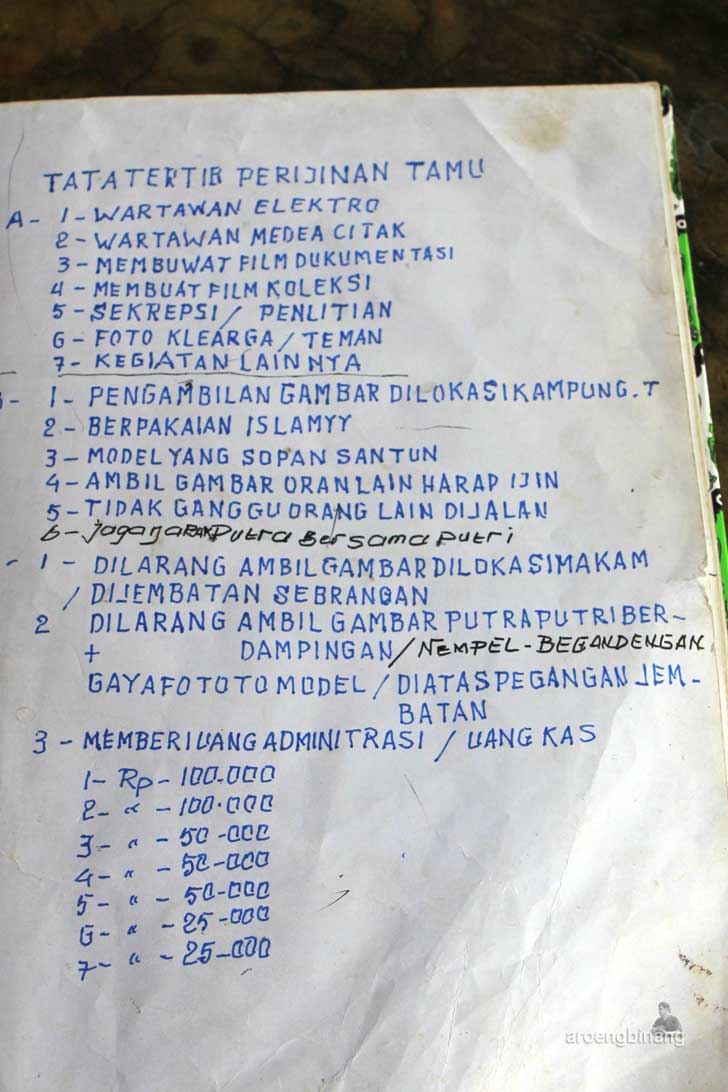 TATATERTIB PERIJINAN TAMU
A- 1- WARTAWAN ELEKTRO
2- WARTAWAN MEDEA CITAK
3- MEMBUWAT FILM DUKUMENTASI
4- MEMBUAT FILM KOLEKSI
5- SEKREPSI / PENLITIAN
6- FOTO KLEARGA / TEMAN
7- KEGIATAN LAINNYA
- 1- PENGAMBILAN GAMBAR DILOKASI KAMPUNG.T
2- BERPAKAIAN ISLAMYY
3- MODEL YANG SOPAN SANTUN
4- AMBIL GAMBAR ORANLAIN HARAP IJIN
5- TIDAK GANGGU ORANG LAIN DIJALAN
6- Jaga JARAK PUtra Bersama PUtri
- 1- DILARANG AMBIL GAMBAR DILOKASI MAKAM
/ DIJEMBATAN SEBRANGAN
2 DILARANG AMBIL GAMBAR PUTRA PUTRI BER-
+ DAMPINGAN / NEMPEL-BEGANDENGAN
GAYA FOTOTO MODEL / DIATAS PEGANGAN JEM-
BATAN
3- MEMBERI UANG ADMINITRASI / UANG KAS
1- Rp - 100.000
2- " - 100.000
3- " - 50-000
4- " - 50-000
5- " - 50-000
6- " - 25-000
7- " - 25-000
aroengbinang